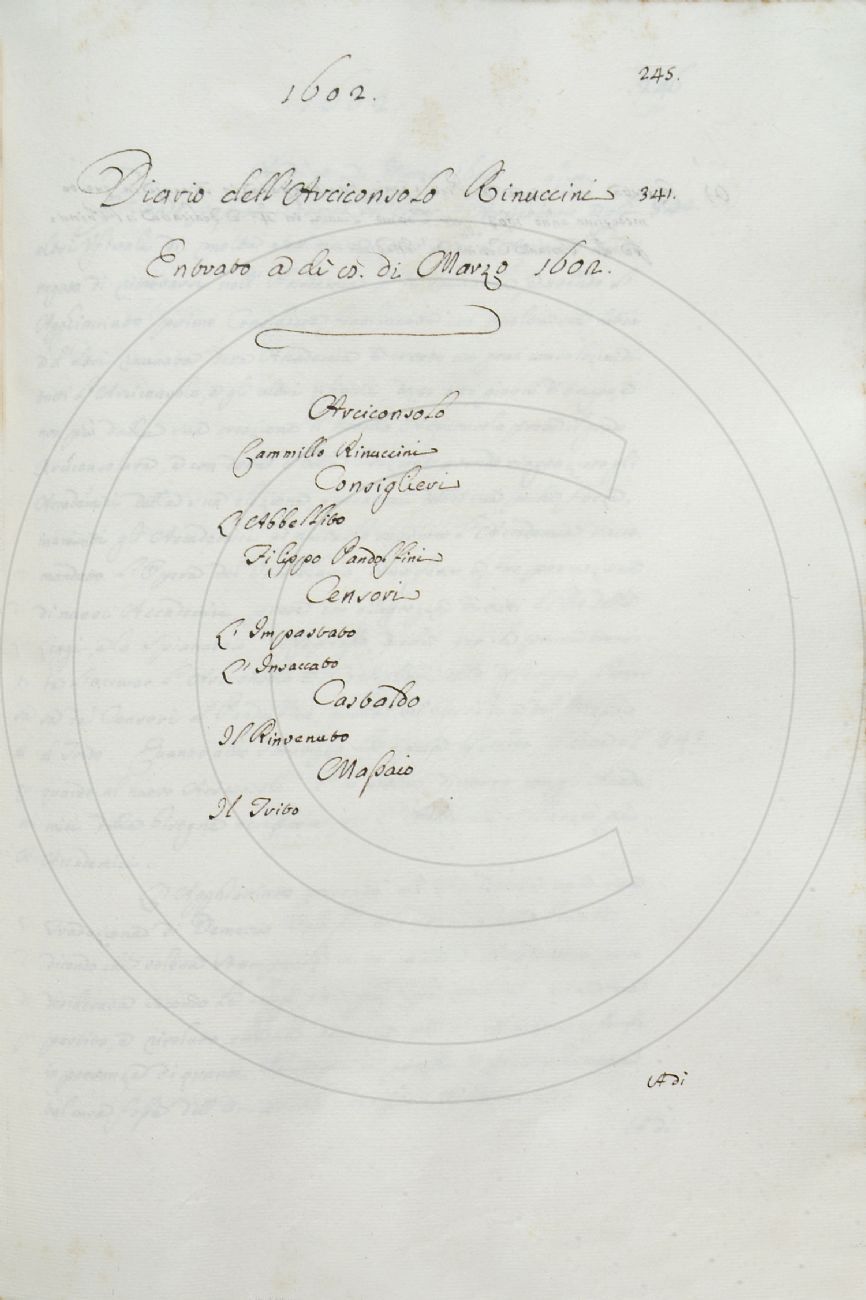 245.
1602.
Diario dell'Arciconsolo Rinuccini 341.
Entrato a dì co. di Marzo 1602.
Arciconsolo
Cammillo Rinuccini
Consiglieri
L'Abbellito
Filippo Pandolfini
Censori
L'Impastato
L'Insaccato
Castaldo
Il Rinvenuto
Massaio
Il Trito
A dì